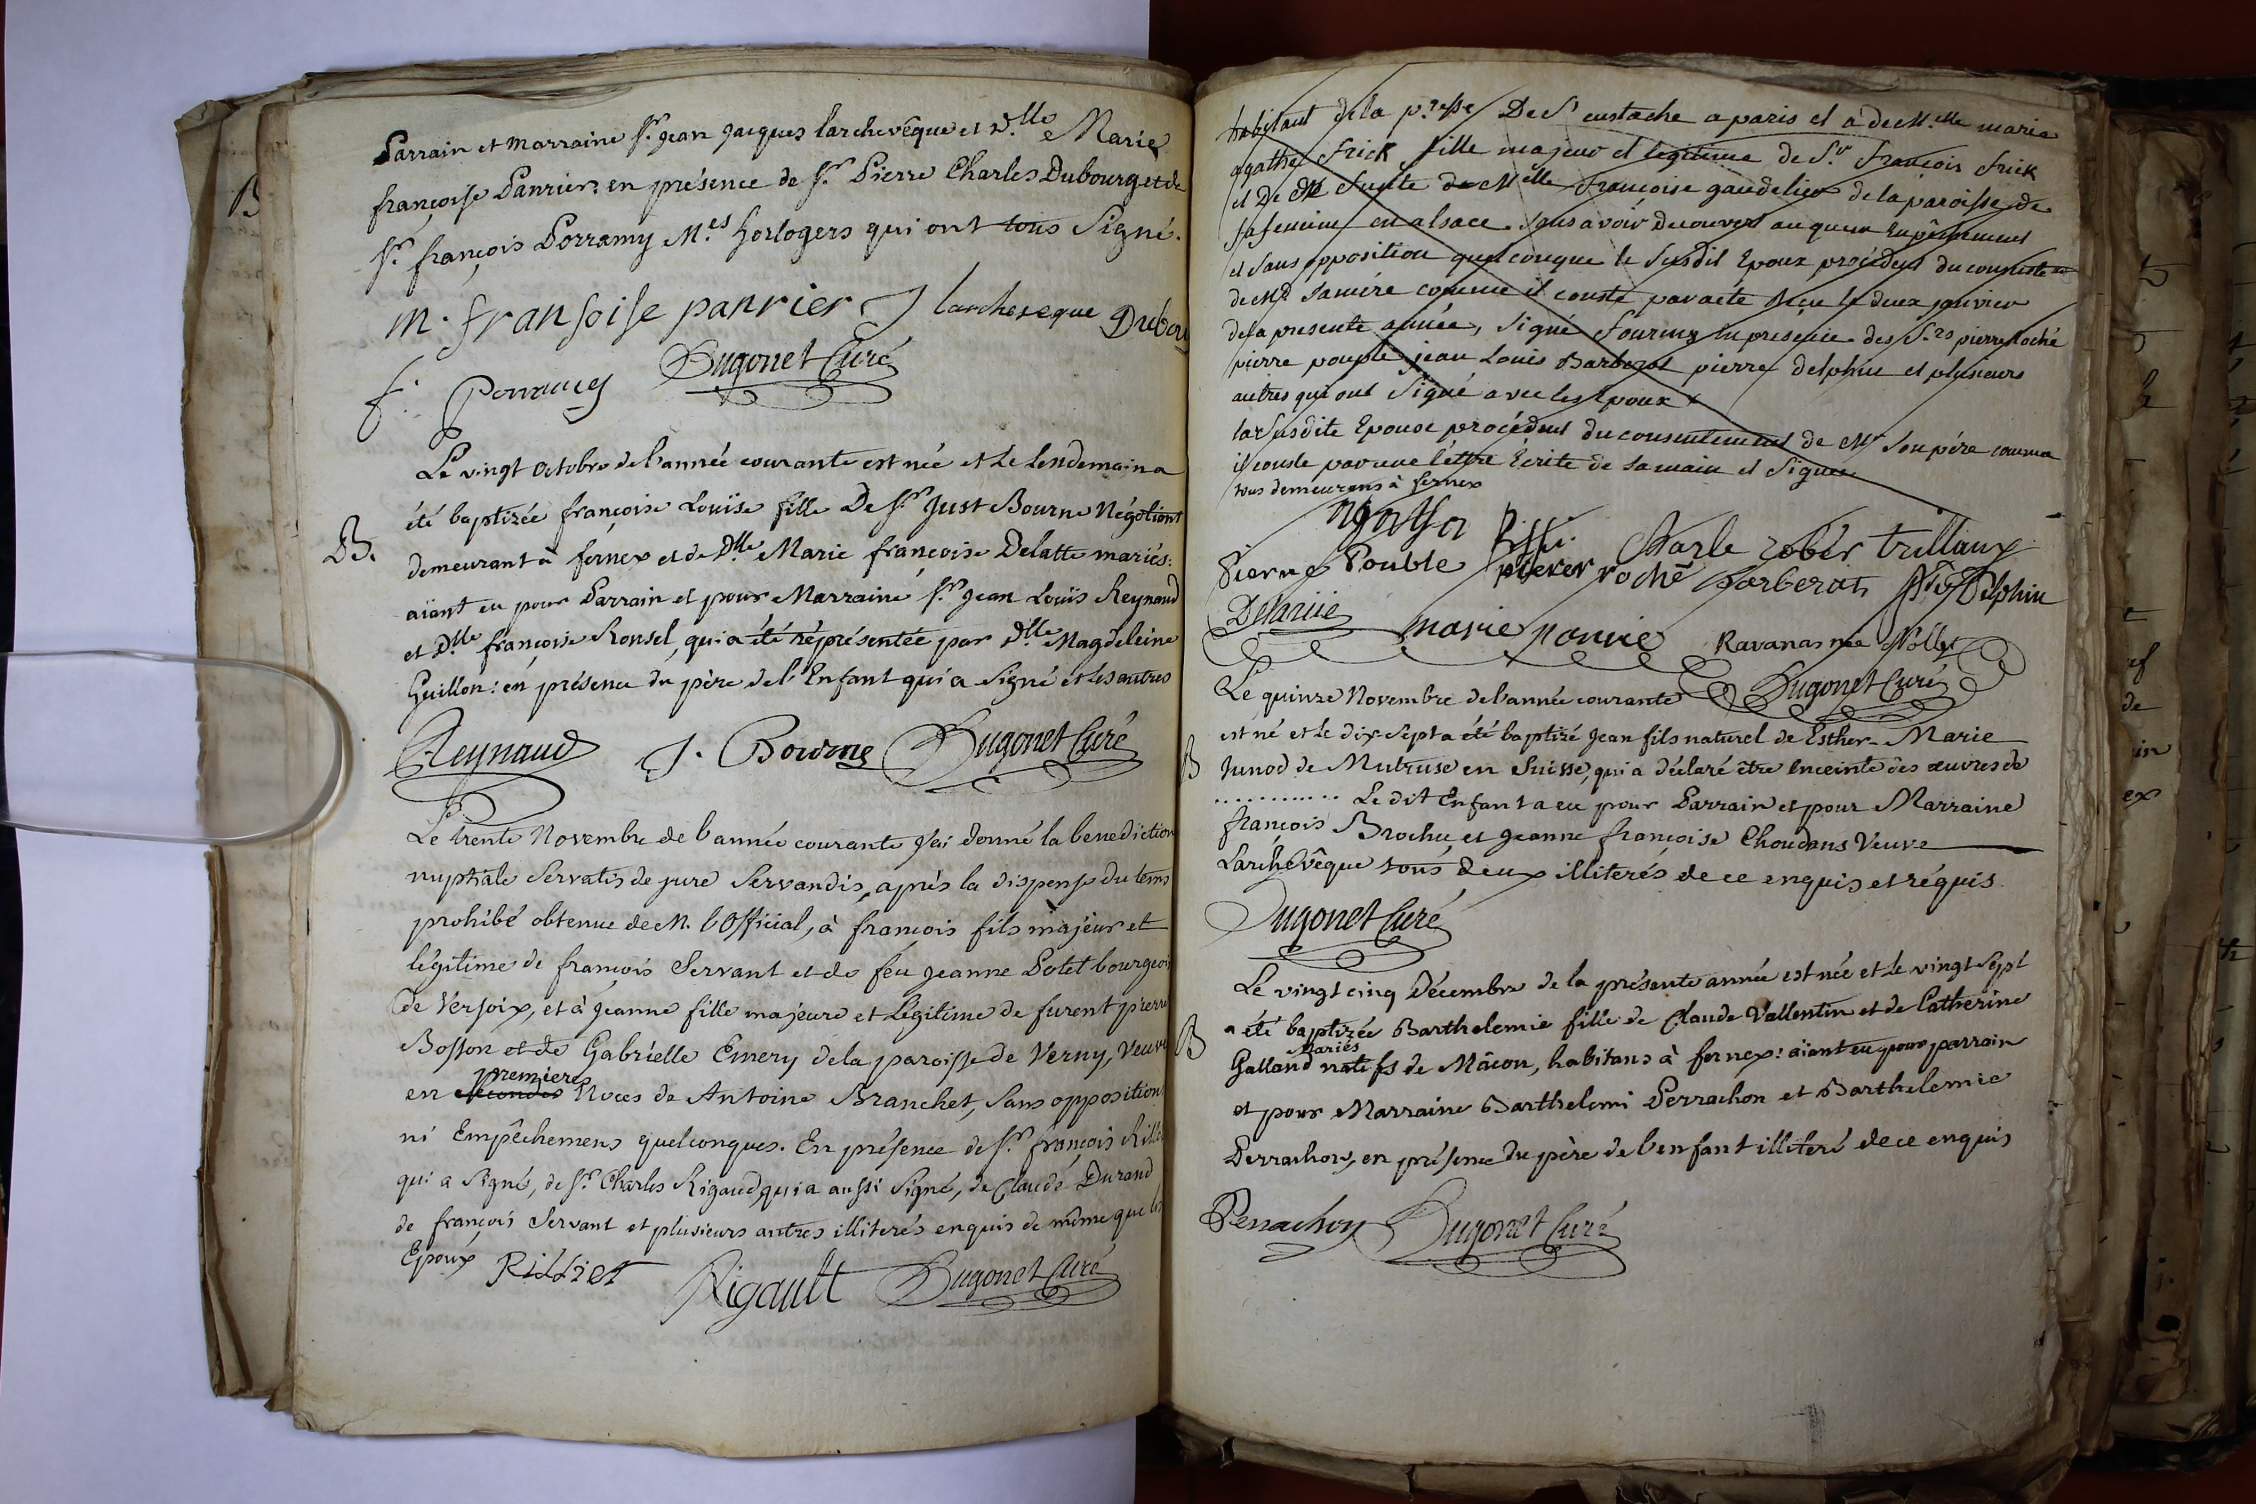 Parrain et Marraine Sr. Jean Jacques larchevêque et D.lle Marie
françoise Panrier: en présence de Sr. Pierre Charles Dubourg et de
Sr. françois Porramy M.es horlogers qui ont tous Signé.
m. fransoise panrier J larcheveque Dubou
f. Dugonet Curé
B.
Le vingt Octobre de l'année courante est née et Le lendemain a
été baptizée françoise Louïse fille De Sr. Just Bourne Négotiant
demeurant à fernex et de Dlle Marie françoise Delatte mariés:
aïant eu pour Parrain et pour Marraine Sr. Jean Louïs Reynaud
et Dlle françoise Ronsel, qui a été réprésentée par Dlle Magdeleine
Guillon: en présence du père de l'Enfant qui a signé et les autres
Reynaud J. Bourne Dugonet Curé
Le trente Novembre de l'année courante J'ai donné la bénédiction
nuptiale Servatis de jure Servandis, après la dispense du tems
prohibé obtenue de M. l'Official, à françois fils majeur et
légitime de françois Servant et de feu Jeanne Potet bourgeois
de Versoix, et à Jeanne fille majeure et Légitime de furent pierre
Bosson et de Gabrielle Emery de la paroisse de Verny, Veuve
premieres
en secondes Noces de Antoine Branchet, Sans opposition
ni Empêchemens quelconques. En présence de Sr. françois Rillie
qui a signé, de Sr. Charles Rigaud, qui a aussi signé, de Claude Durand
de françois Servant et plusieurs autres illiterés enquis de même que les
Epoux Rilliet Rigault Dugonet Curé
habitant de la p.resse De St eustache a paris et a deM.elle marie
agathe frick fille majeur et legitime de S.r françois frick
et De de Mlle françoise gaudelieu de la paroisse de
en alsace. Sans avoir decouvert auqueun Empêchement
et sans opposition quelconque le Susdit Epoux procédent du
de Md Samére comme il conste par acte Reçu le deux janvier
de la presente année, Signé En presence des S.rs pierre Roché
pierre pouple jean Louis Barberot pierre delphin et plusieurs
autres qui ont Signé avec les Epoux
la Susdite Epouse procédent du consentement de Mr Son pére comme
il conste par une léttre Ecrite de Samain et Signée
tous demeurans à fernex
Agatha charle rober trillaux
Pierre Pouble pierer roché barberat Delphin
Delariie marie Ravanas née Nollet
Dugonet Curé
B
Le quinze Novembre de l'année courante
est né et Le dix-Sept a été baptizé Jean fils naturel de Esther-Marie
Junod de Mutruse en Suisse, qui a déclaré être enceinte des œuvres de
........... Le dit Enfant a eu pour Parrain et pour Marraine
françois Brochu et Jeanne françoise Choudans Veuve
Larchevêque tous deux illiterés de ce enquis et réquis.
Dugonet Curé
B
Le vingt cinq Décembre de la présente année est née et Le vingt Sept
a été baptizée Barthelemie fille de Claude Vallentin et de Catherine
Mariés
Galland natifs de Mâcon, habitans à fernex: aïant eu pour parrain
et pour Marraine Barthelemi Perrachon et Barthelemie
Perrachon, en présence du père de l'enfant illiteré de ce enquis
Perrachon Dugonet Curé